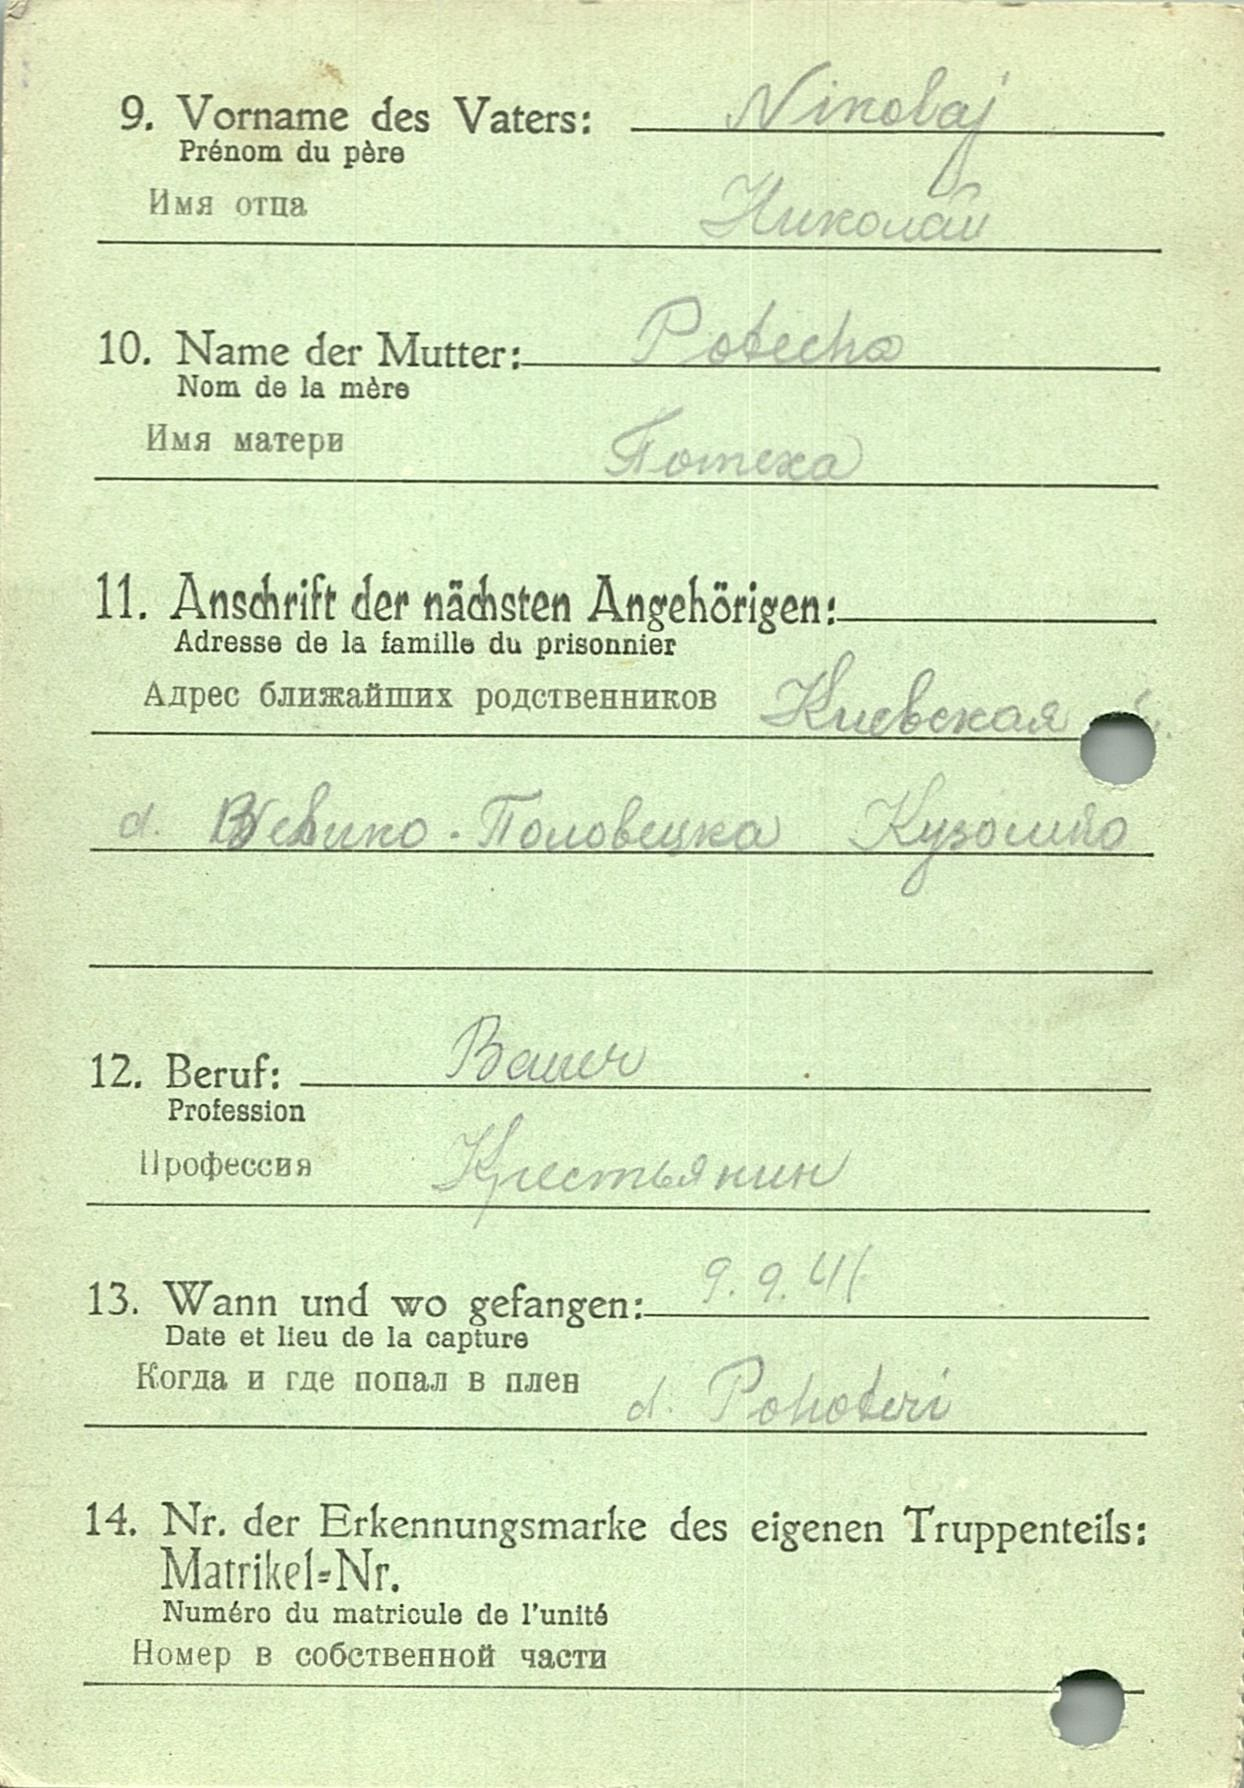 9. Vorname des Vaters: Nikolaj
Prénom du père
Имя отца Николай
10. Name der Mutter: Potecha
Nom de la mère
Имя матери Потеха
11. Anschrift der nächsten Angehörigen:
Adresse de la famille du prisonnier
Адрес ближайших родственников Киевская
d. Велико-Половецка
12. Beruf: Bauer
Profession
Профессия Крестьянин
13. Wann und wo gefangen: 9.9.41
Date et lieu de la capture
Когда и где попал в плен d. Pohoteri
14. Nr. der Erkennungsmarke des eigenen Truppenteils:
Matrikel=Nr.
Numéro du matricule de l'unité
Номер в собственной части